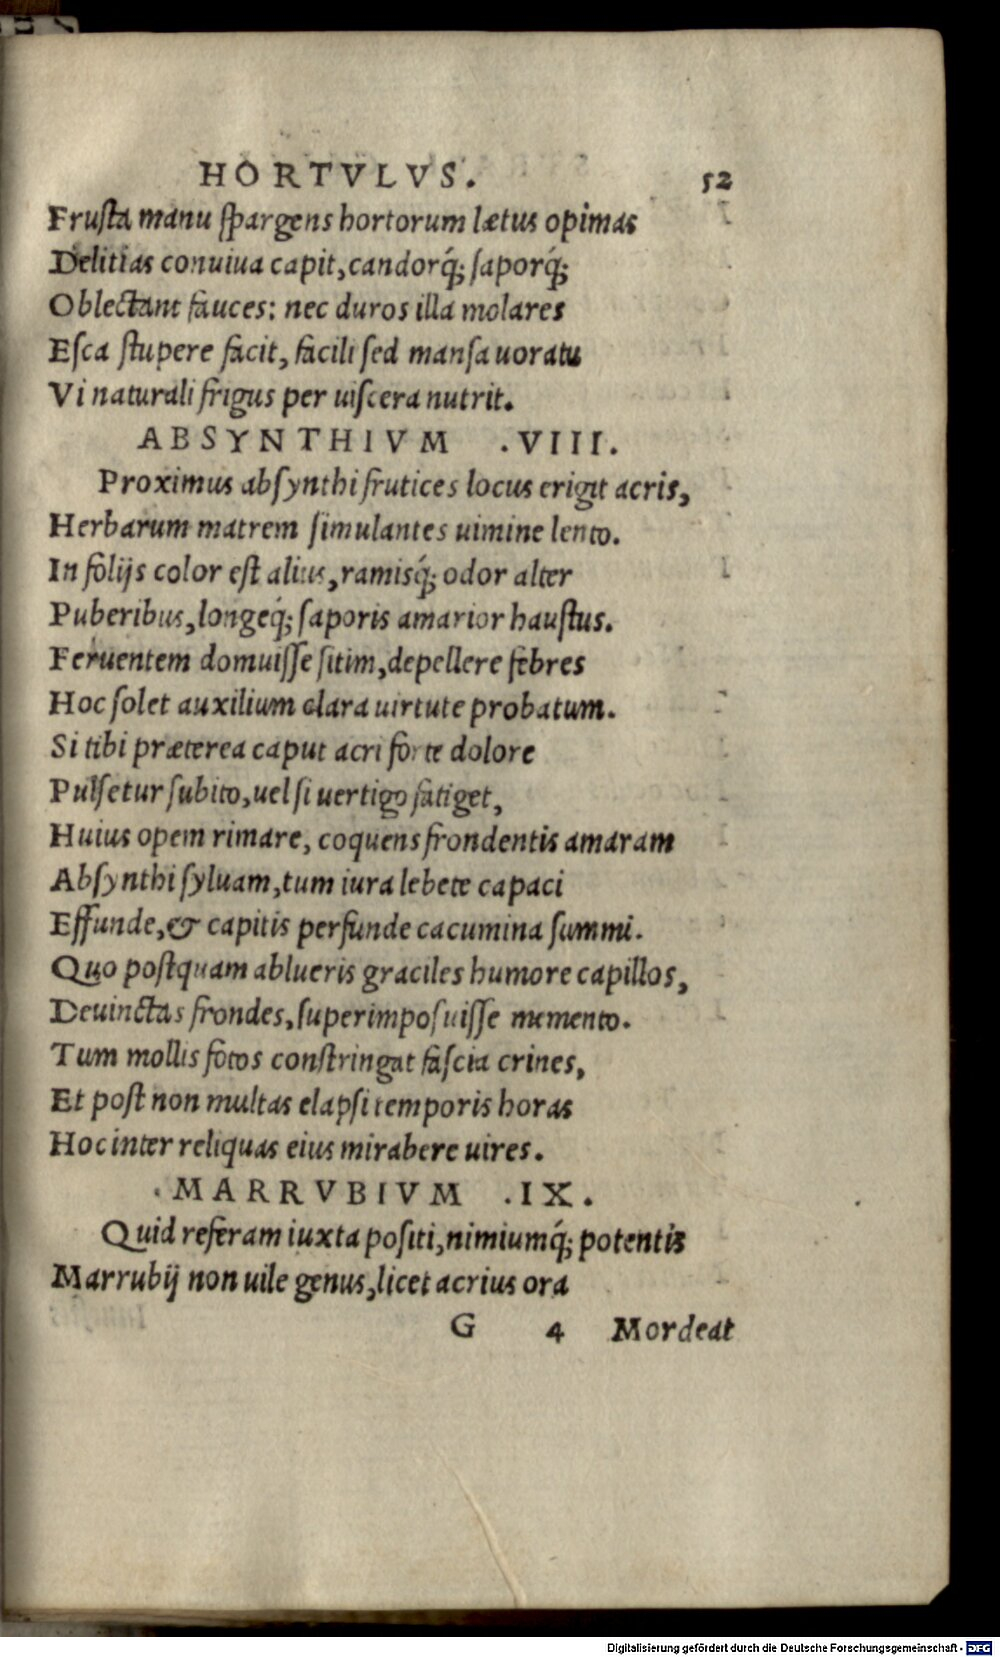 HORTVLVS. 52
Fruſta manu ſpargens hortorum lætus opimas
Delitias conuiua capit, candorq́; ſaporq́;
Oblectant fauces: nec duros illa molares
Eſca ſtupere facit, facili ſed manſa uoratu
Vi naturali frigus per uiſcera nutrit.
ABSYNTHIVM .VIII.
Proximus abſynthi frutices locus erigit acris,
Herbarum matrem ſimulantes uimine lento.
In folijs color eſt alius, ramisq́; odor alter
Puberibus, longeq́; ſaporis amarior hauſtus.
Feruentem domuiſſe ſitim, depellere febres
Hoc ſolet auxilium clara uirtute probatum.
Si tibi præterea caput acri forte dolore
Pulſetur ſubito, uel ſi uertigo fatiget,
Huius opem rimare, coquens frondentis amaram
Abſynthi ſyluam, tum iura lebete capaci
Effunde, & capitis perfunde cacumina ſummi.
Quo poſtquam ablueris graciles humore capillos,
Deuinctas frondes, ſuperimpoſuiſſe memento.
Tum mollis fotos conſtringat faſcia crines,
Et poſt non multas elapſi temporis horas
Hoc inter reliquas eius mirabere uires.
.MARRVBIVM .IX.
Quid referam iuxta poſiti, nimiumq́; potentis
Marrubij non uile genus, licet acrius ora
G 4 Mordeat
Digitalisierung gefördert durch die Deutsche Forschungsgemeinschaft - DFG